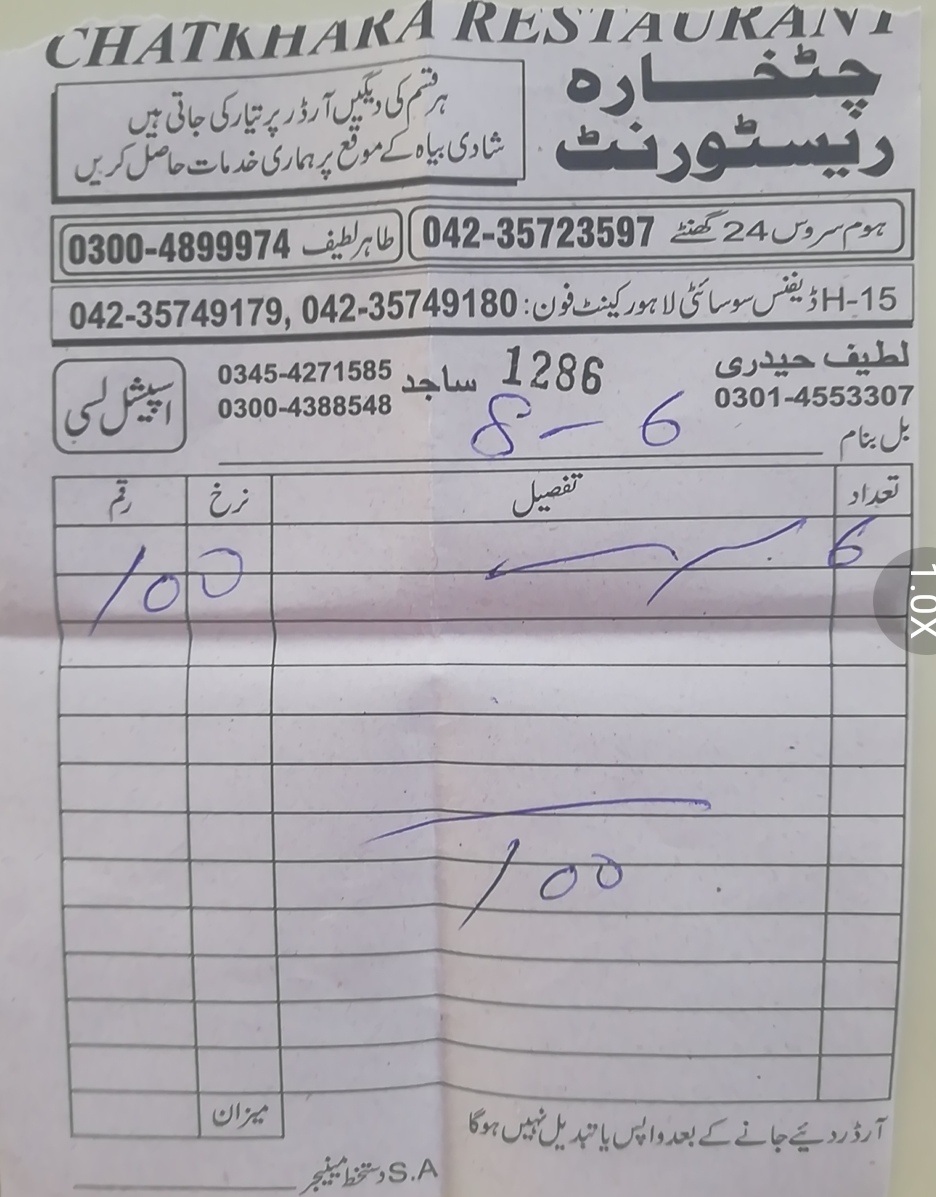 CHATKHARA RESTAURANT
چٹخارہ
ریسٹورنٹ
ہر قسم کی دیگیں آرڈر پر تیار کی جاتی ہیں
شادی بیاہ کے موقع پر ہماری خدمات حاصل کریں
ہوم سروس 24 گھنٹے 042-35723597
طاہر لطیف 0300-4899974
H-15 ڈیفنس سوسائٹی لاہور کینٹ فون: 042-35749180 ,042-35749179
لطیف حیدری
0301-4553307
1286
ساجد 0345-4271585
0300-4388548
اسپیشل لسی
بل بنام
8 - 6
تعداد تفصیل نرخ رقم
6 100
100
میزان
آرڈر دئیے جانے کے بعد واپس یا تبدیل نہیں ہوگا
S.A دستخط مینیجر
1.0X